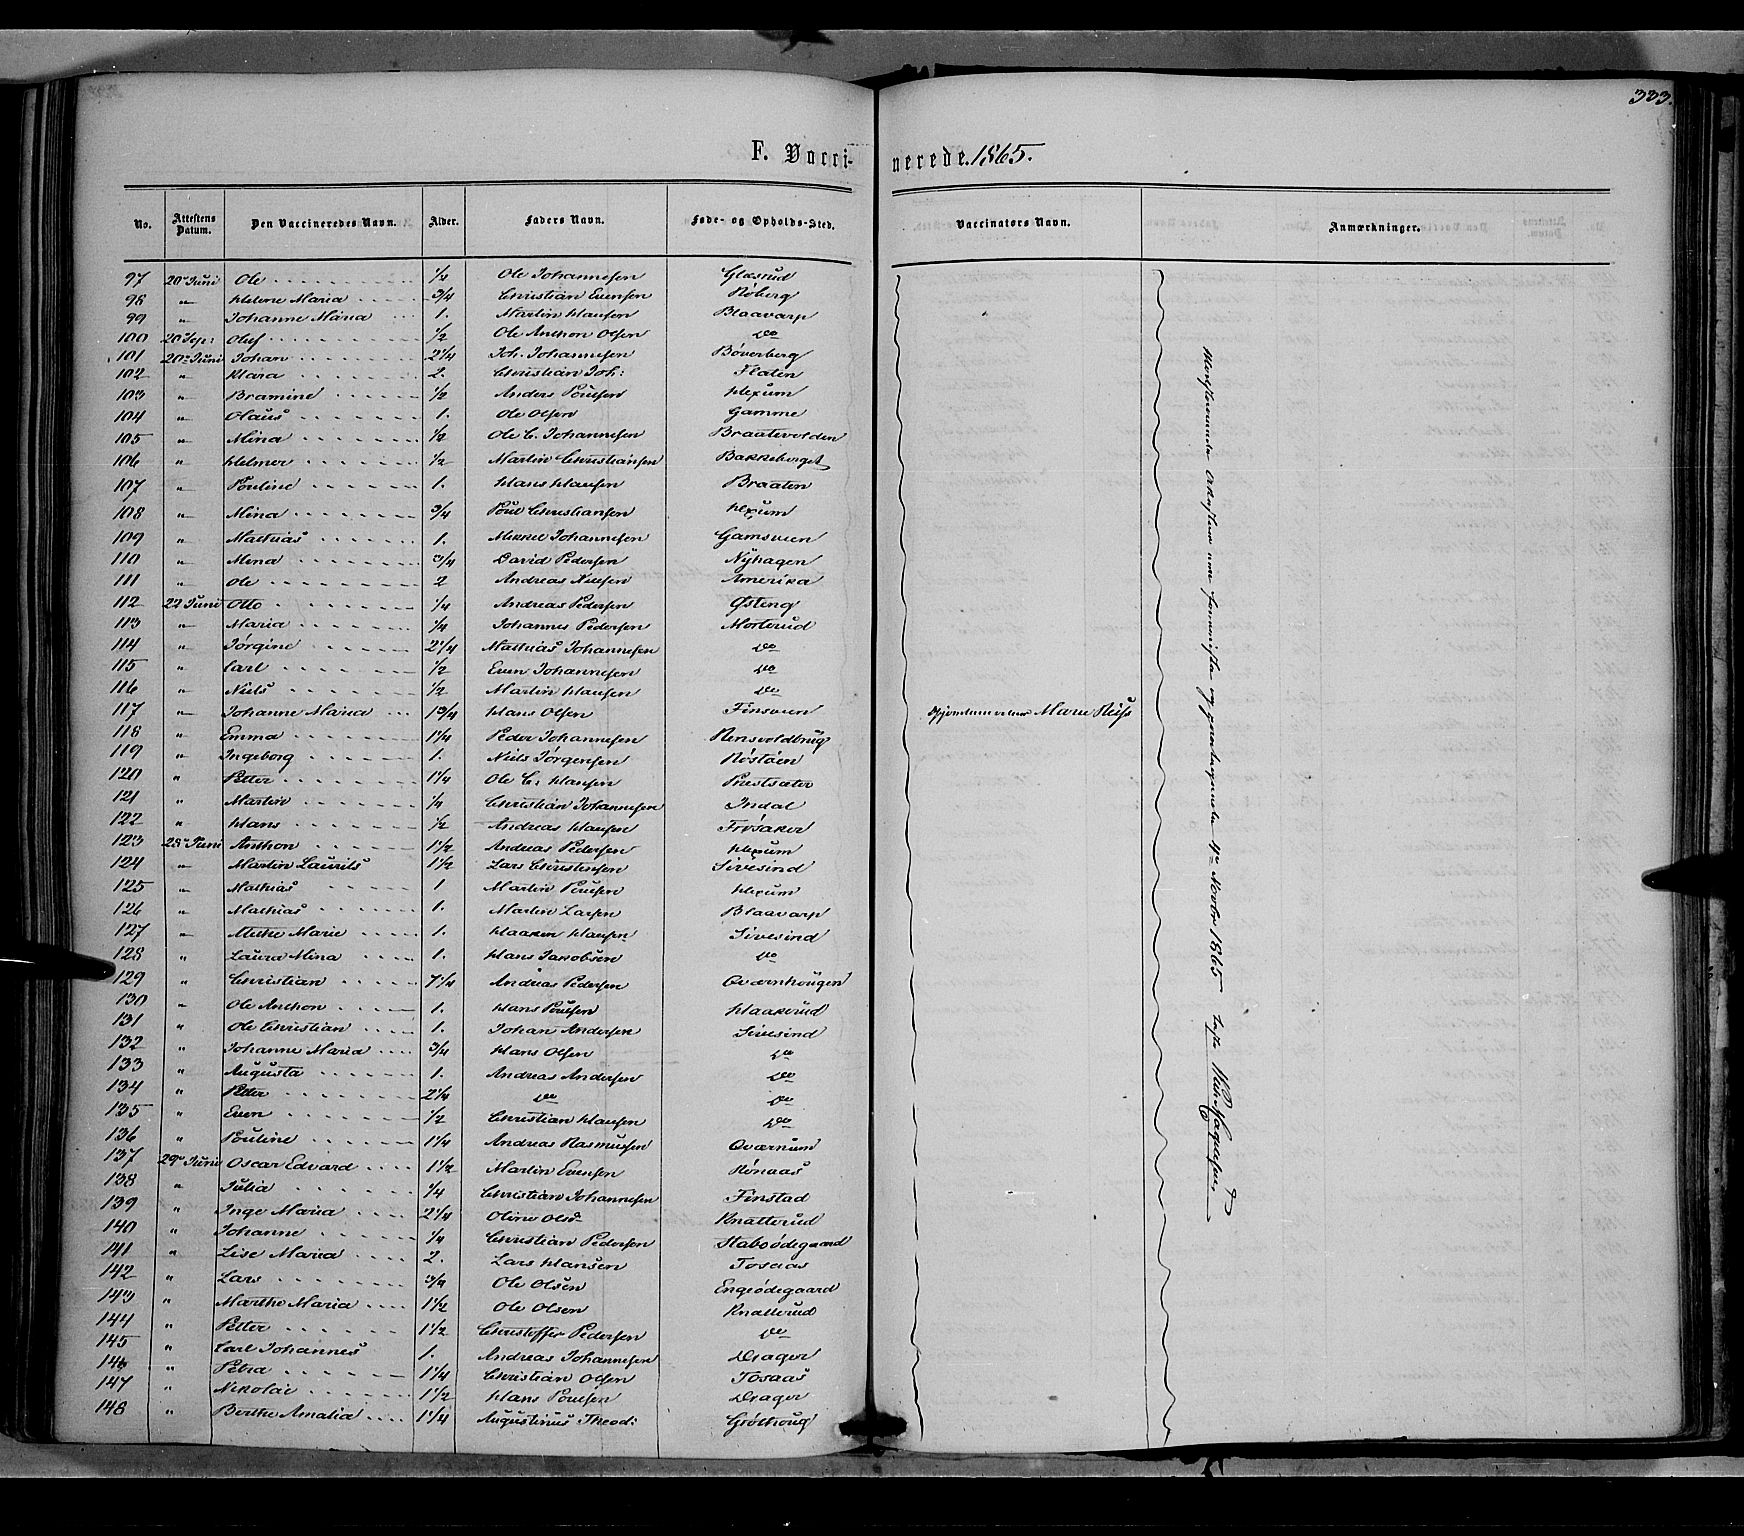 333.
F. Vaccinerede. 1865.
No. Attestens Datum. Den Vaccineredes Navn. Alder. Faders Navn. Føde- og Opholds-Sted. Vaccinators Navn. Anmærkninger.
97 20de Juni Ole 1/2 Ole Johannesen Glæsrud
98 " Helene Maria 3/4 Christian Evensen Røberg
99 " Johanne Maria 1. Martin Hansen Blaavarp
100 20 Sep: Oluf 1/2 Ole Anthon Olsen do
101 20de Juni Johan 2 1/4 Joh. Johannesen Bøverberg
102 " Klara 2. Christian Joh: Flaten
103 " Bramine 1/2 Anders Poulsen Hexum
104 " Olaus 1. Ole Olsen Gamme
105 " Mina 1/2 Ole C. Johannesen Braatevolden
106 " Helmer 1/2 Martin Christiansen Bakkeberget
107 " Pouline 1. Hans Hansen Braaten
108 " Mina 3/4 Poul Christiansen Hexum
109 " Mathias 1. Mikkel Johannesen Gamsveen
110 " Mina 3/4 David Pedersen Nyhagen
111 " Ole 2 Andreas Nielsen Amerika
112 22 Juni Otto 1/4 Andreas Pedersen Østeng
113 " Maria 1/4 Johannes Pedersen Morterud
114 " Jørgine 2 1/4 Mathias Johannesen do
115 " Carl 1/2 Even Johannesen do
116 " Niels 1/2 Martin Hansen do
117 " Johanne Maria 1 3/4 Hans Olsen Finsveen Marie Reiss
118 " Emma 1 1/4 Peder Johannesen Rensvoldbrug
119 " Ingeborg 1. Niels Jørgensen Røstøen
120 " Petter 1 1/4 Ole C: Hansen Prestsæter
121 " Martin 1/4 Christian Johannesen Indal
122 " Hans 1/2 Andreas Hansen Frøsaker
123 28de Juni Anthon 1 1/2 Andreas Pedersen Hexum
124 " Martin Laurits 1 1/2 Lars Christensen Sivesind
125 " Mathias 1 Martin Poulsen Hexum
126 " Mathias 1. Martin Larsen Blaavarp
127 " Mathe Marie 1. Haaken Hansen Sivesind
128 " Laura Mina 1. Hans Jakobsen do
129 " Christian 7 1/4 Andreas Pedersen Qværnhougen
130 " Ole Anthon 1. Hans Poulsen Haakerud
131 " Ole Christian 1. Johan Andersen Sivesind
132 " Johanne Maria 3/4 Hans Olsen do
133 " Augusta 1. Andreas Andersen do
134 " Peter 2 1/4 do do
135 " Even 1/2 Christian Hansen do
136 " Pouline 1 1/4 Andreas Rasmussen Qværnum
137 29de Juni Oscar Edvard 1 1/2 Martin Evensen Rønaas
138 " Julia 1/4 Christian Johannesen Finstad
139 " Inge Maria 2 1/4 Oline Olsd. Knatterud
140 " Johanne 1/4 Christian Pedersen Staboødegaard
141 " Lise Maria 2. Lars Hansen Tosaas
142 " Lars 3/4 Ole Olsen Engeødegaard
143 " Marthe Maria 1 1/2 Ole Olsen Knatterud
144 " Petter 1 1/2 Christoffer Pedersen do
145 " Carl Johannes 1. Andreas Johannesen Drager
146 " Petra 1 1/4 Christian Olsen Tosaas
147 " Nikolai 1 1/2 Hans Poulsen Drager
148 " Berthe Amalia 1 1/4 Augustinus Theod: Grøthoug
og 4de Novbr 1865